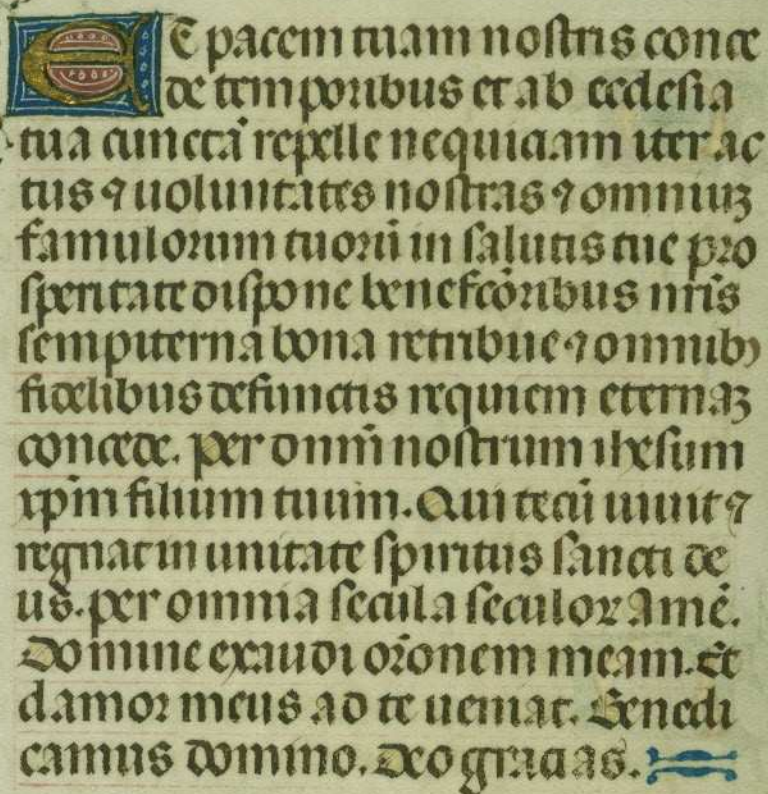 Et pacem tuam nostris conce
de temporibus et ab ecclesia
tua cunctā repelle nequiciam iter ac
tus ⁊ uoluntates nostras ⁊ omniuꝫ
famulorum tuorū in salutis tue pro
speritate dispone benefcōribus nr̄is
sempiterna bona retribue ⁊ omnibꝰ
fidelibus defunctis requiem eternaꝫ
concede. per dnm̄ nostrum ihesum
xp̄m filium tuum. Qui tecū uiuit ⁊
regnat in unitate spiritus sancti de
us. per omnia secula seculoꝝ amē.
Domine exaudi or̄onem meam. Et
clamor meus ad te ueniat. Benedi
camus domino. Deo gracias.